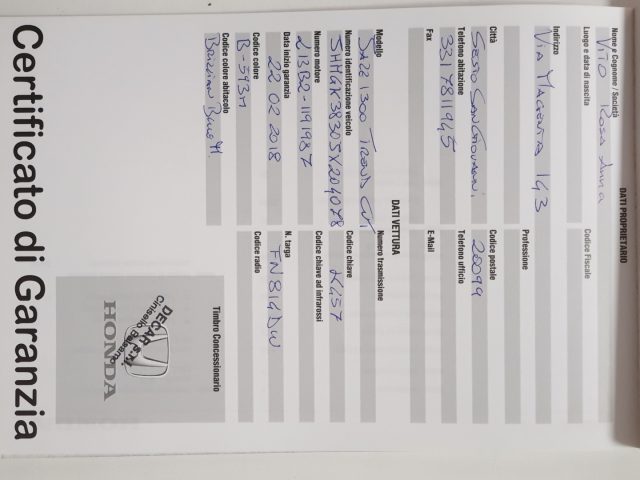 Certificato di Garanzia
DATI PROPRIETARIO
Nome e Cognome / Società
VITO ROSA ANNA
Luogo e data di nascita
Codice Fiscale
Indirizzo
VIA MAGENTA 143
Professione
Città
SESTO SAN GIOVANNI
Codice postale
20099
Telefono abitazione
3317811945
Telefono ufficio
Fax
E-Mail
DATI VETTURA
Modello
JAZZ 1300 TREND CVT
Numero trasmissione
Numero identificazione veicolo
JHMGK38305X204078
Codice chiave
K457
Numero motore
L13B2-1191987
Codice chiave ad infrarossi
Data inizio garanzia
22 02 2018
N. targa
FN814DW
Codice colore
B-593M
Codice radio
Codice colore abitacolo
BRILLIAN BLUE M.
Timbro Concessionario
HONDA
DECAR S.r.l.
Cinisello Balsamo